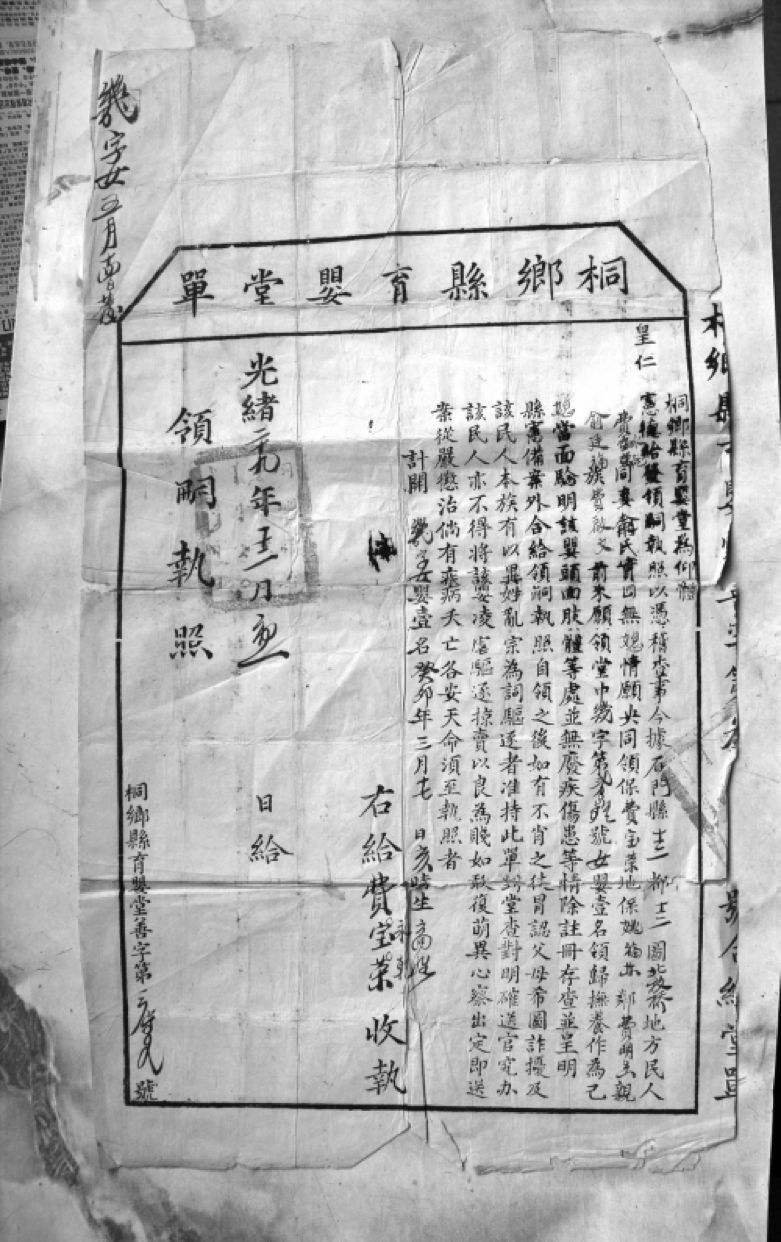 桐鄉縣育嬰堂單
桐鄉縣育嬰堂為仰體
皇仁
憲德給發領嗣執照以憑稽查事今據石門縣十二都十二圖地方民人
費同妻氏實因無媳情願央同領保費宝荣地保姚鄰費明玉親
費啟文前來願領堂中幾字第號女嬰壹名領歸撫養作為己
媳當面驗明該嬰頭面肢體等處並無廢疾傷患等情除註冊存查並呈明
縣憲備案外合給領嗣執照自領之後如有不肖之徒冒認父母希圖詐擾及
該民人本族有以異姓亂宗為詞驅逐者准持此單赴堂查對明確送官究办
該民人亦不得將該嬰凌虐驅逐掠賣以良為賤如敢復萌異心察出定即送
案從嚴懲治倘有疾病夭亡各安天命須至執照者
計開 幾字女嬰壹名癸卯年三月十七日亥時生
右給費宝荣收執
光緒二十九年十二月 日給
領嗣執照
桐鄉縣育嬰堂善字第 號
幾字女五月
號合給堂單